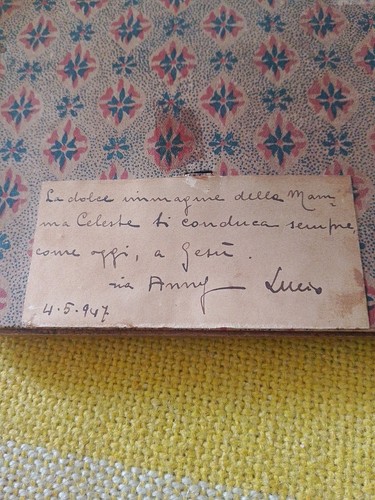 La dolce immagine della Mam
ma Celeste ti conduca sempre,
come oggi, a Gesù.
Anny Lucio
4.5.947